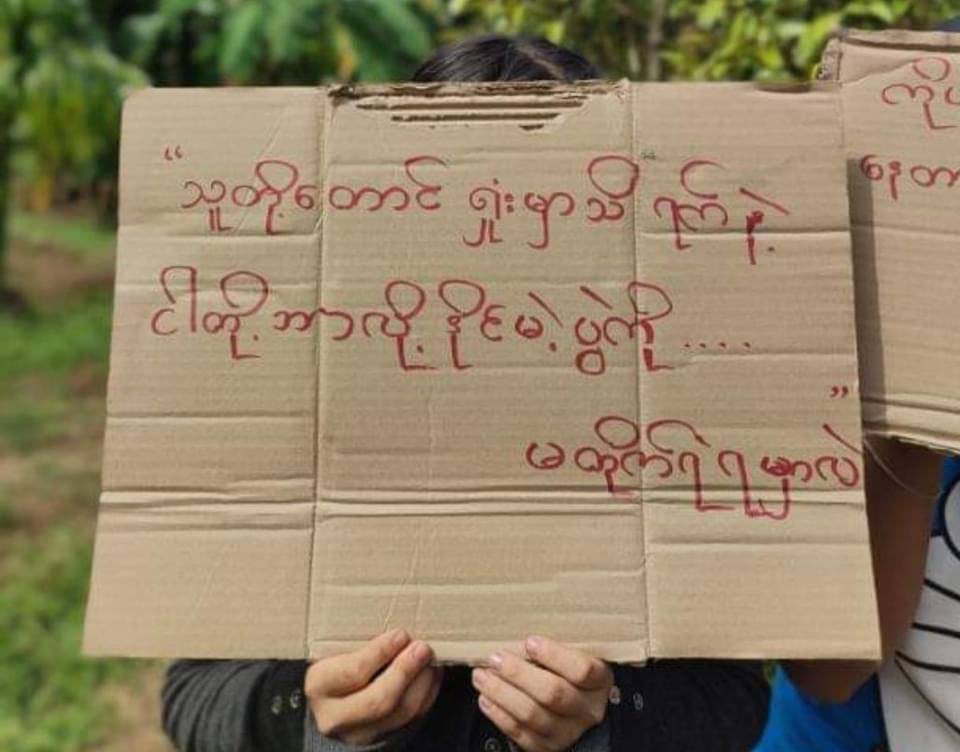 “
သူတို့တောင် ရှုံးမှာသိ ရက်နဲ့
ငါတို့ ဘာလို့ နိုင်မဲ့ ပွဲကို ....
”
မတိုက်ရဲ ရမှာလဲ
ကို
နေတာ